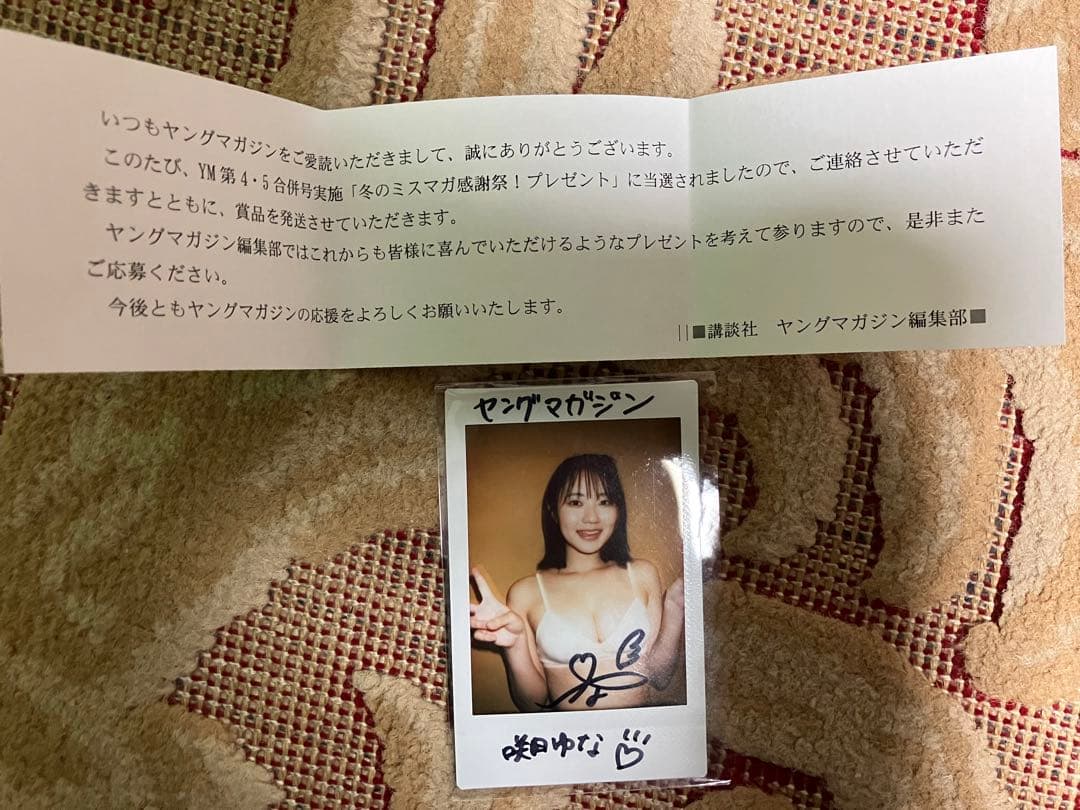 いつもヤングマガジンをご愛読いただきまして、誠にありがとうございます。
このたび、YM第4・5合併号実施「冬のミスマガ感謝祭！プレゼント」に当選されましたので、ご連絡させていただ
きますとともに、賞品を発送させていただきます。
ヤングマガジン編集部ではこれからも皆様に喜んでいただけるようなプレゼントを考えて参りますので、是非また
ご応募ください。
今後ともヤングマガジンの応援をよろしくお願いいたします。
||■講談社　ヤングマガジン編集部■
ヤングマガジン
咲田ゆな